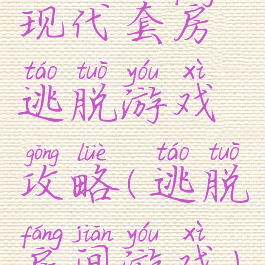 现代套房
táo tuō yóu xì
逃脱游戏
gōng lüè táo tuō
攻略(逃脱
fáng jiān yóu xì
房间游戏)